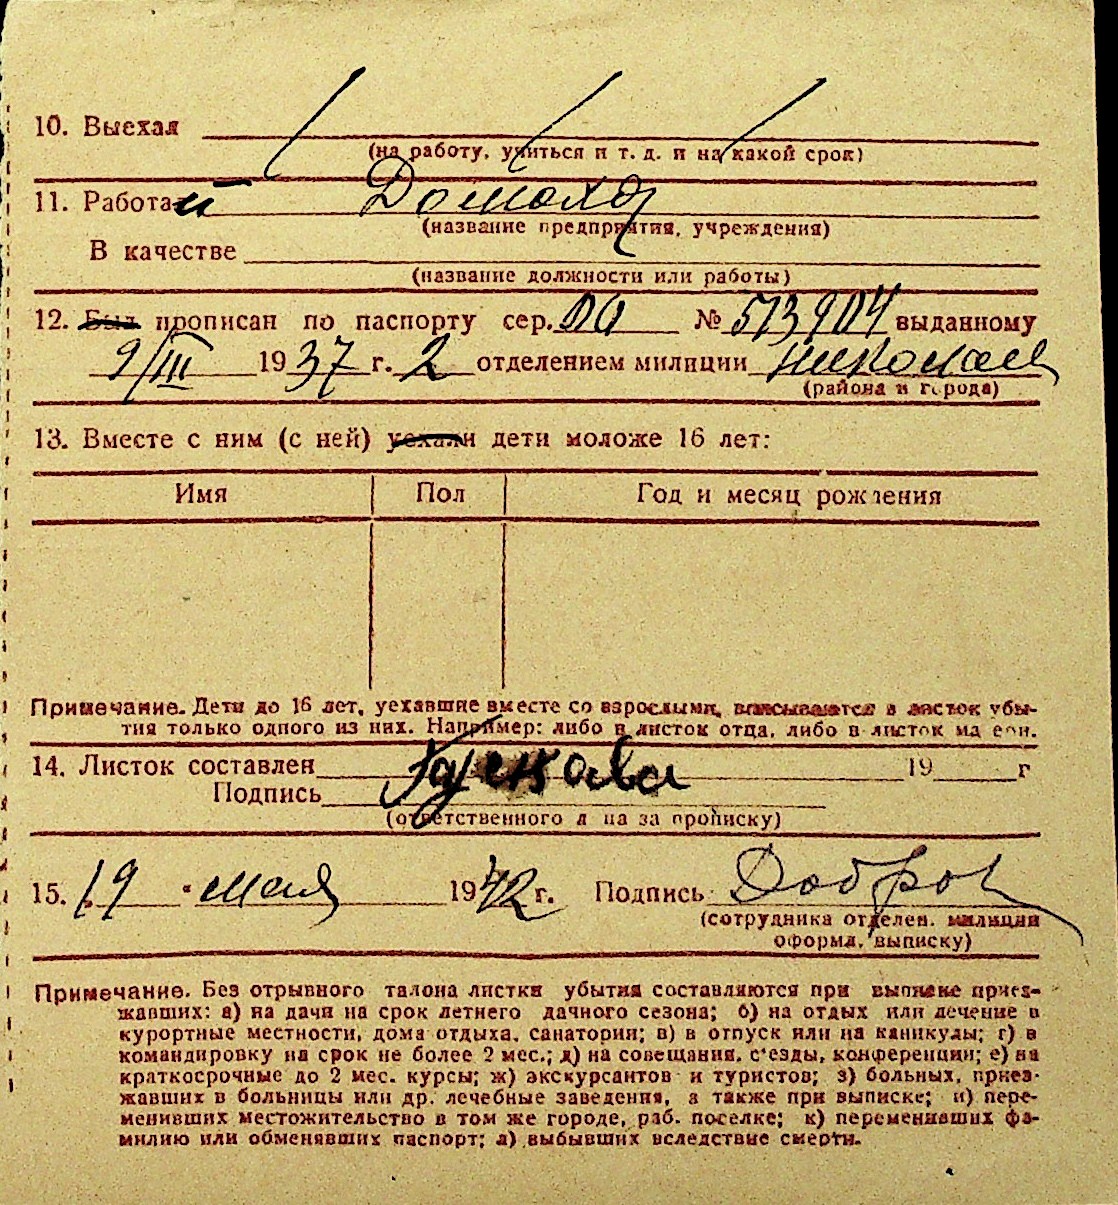 10. Выехал
(на работу, учиться и т. д. и на какой срок)
11. Работал Домохоз
(название предприятия, учреждения)
В качестве
(название должности или работы)
12. Был прописан по паспорту сер. № 513904 выданному
9/III 1937 г. 2 отделением милиции Николаев
(района и города)
13. Вместе с ним (с ней) уехали дети моложе 16 лет:
Имя Пол Год и месяц рождения
Примечание. Дети до 16 лет, уехавшие вместе со взрослыми, вписываются в листок убы-
тия только одного из них. Например: либо в листок отца, либо в листок матери.
14. Листок составлен 19 г
Подпись
(ответственного лица за прописку)
15. 19 " мая 1942 г. Подпись Добров
(сотрудника отделен. милиции
оформл. выписку)
Примечание. Без отрывного талона листки убытия составляются при выписке приез-
жавших: а) на дачи на срок летнего дачного сезона; б) на отдых или лечение в
курортные местности, дома отдыха, санатории; в) в отпуск или на каникулы; г) в
командировку на срок не более 2 мес.; д) на совещания, с'езды, конференции; е) на
краткосрочные до 2 мес. курсы; ж) экскурсантов и туристов; з) больных, приез-
жавших в больницы или др. лечебные заведения, а также при выписке; и) пере-
менивших местожительство в том же городе, раб. поселке; к) переменивших фа-
милию или обменявших паспорт; л) выбывших вследствие смерти.